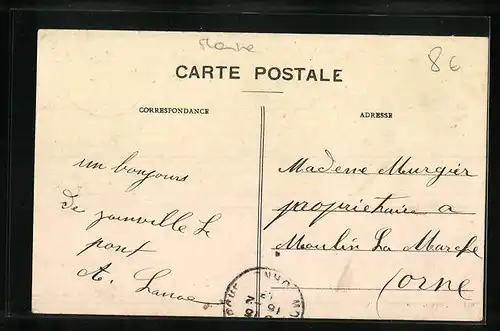 8€
CARTE POSTALE
CORRESPONDANCE
ADRESSE
un bonjours
de joinville Le
pont
A.
Madame Murgier
propriétaire a
Moulin La Marche
Orne